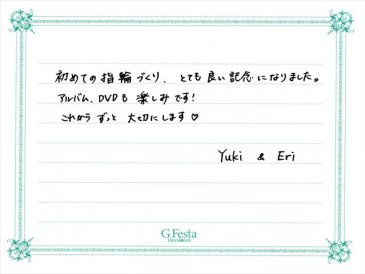 初めての指輪づくり、とても良い記念になりました。
アルバム、DVDも楽しみです!
これからずっと大切にします♡
Yuki & Eri
G.Festa